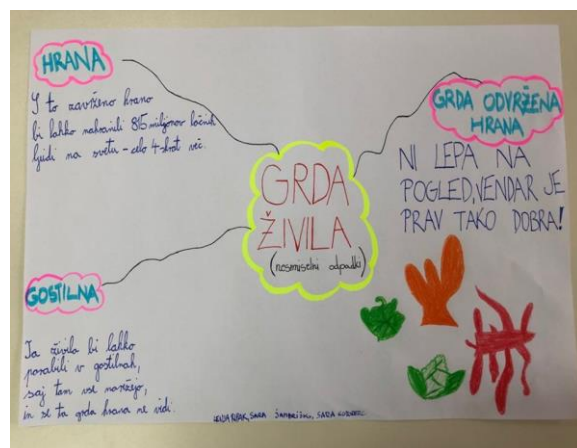 HRANA
S to zavrženo hrano
bi lahko nahranili 815 milijonov lačnih
ljudi na svetu - celo 4-krat več.
GRDA
ŽIVILA
(nesmiselni odpadki)
GRDA ODVRŽENA
HRANA
NI LEPA NA
POGLED, VENDAR JE
PRAV TAKO DOBRA!
GOSTILNA
Ta živila bi lahko
porabili v gostilnah,
saj tam vse narežejo,
in se ta grda hrana ne vidi.
SARA SARA